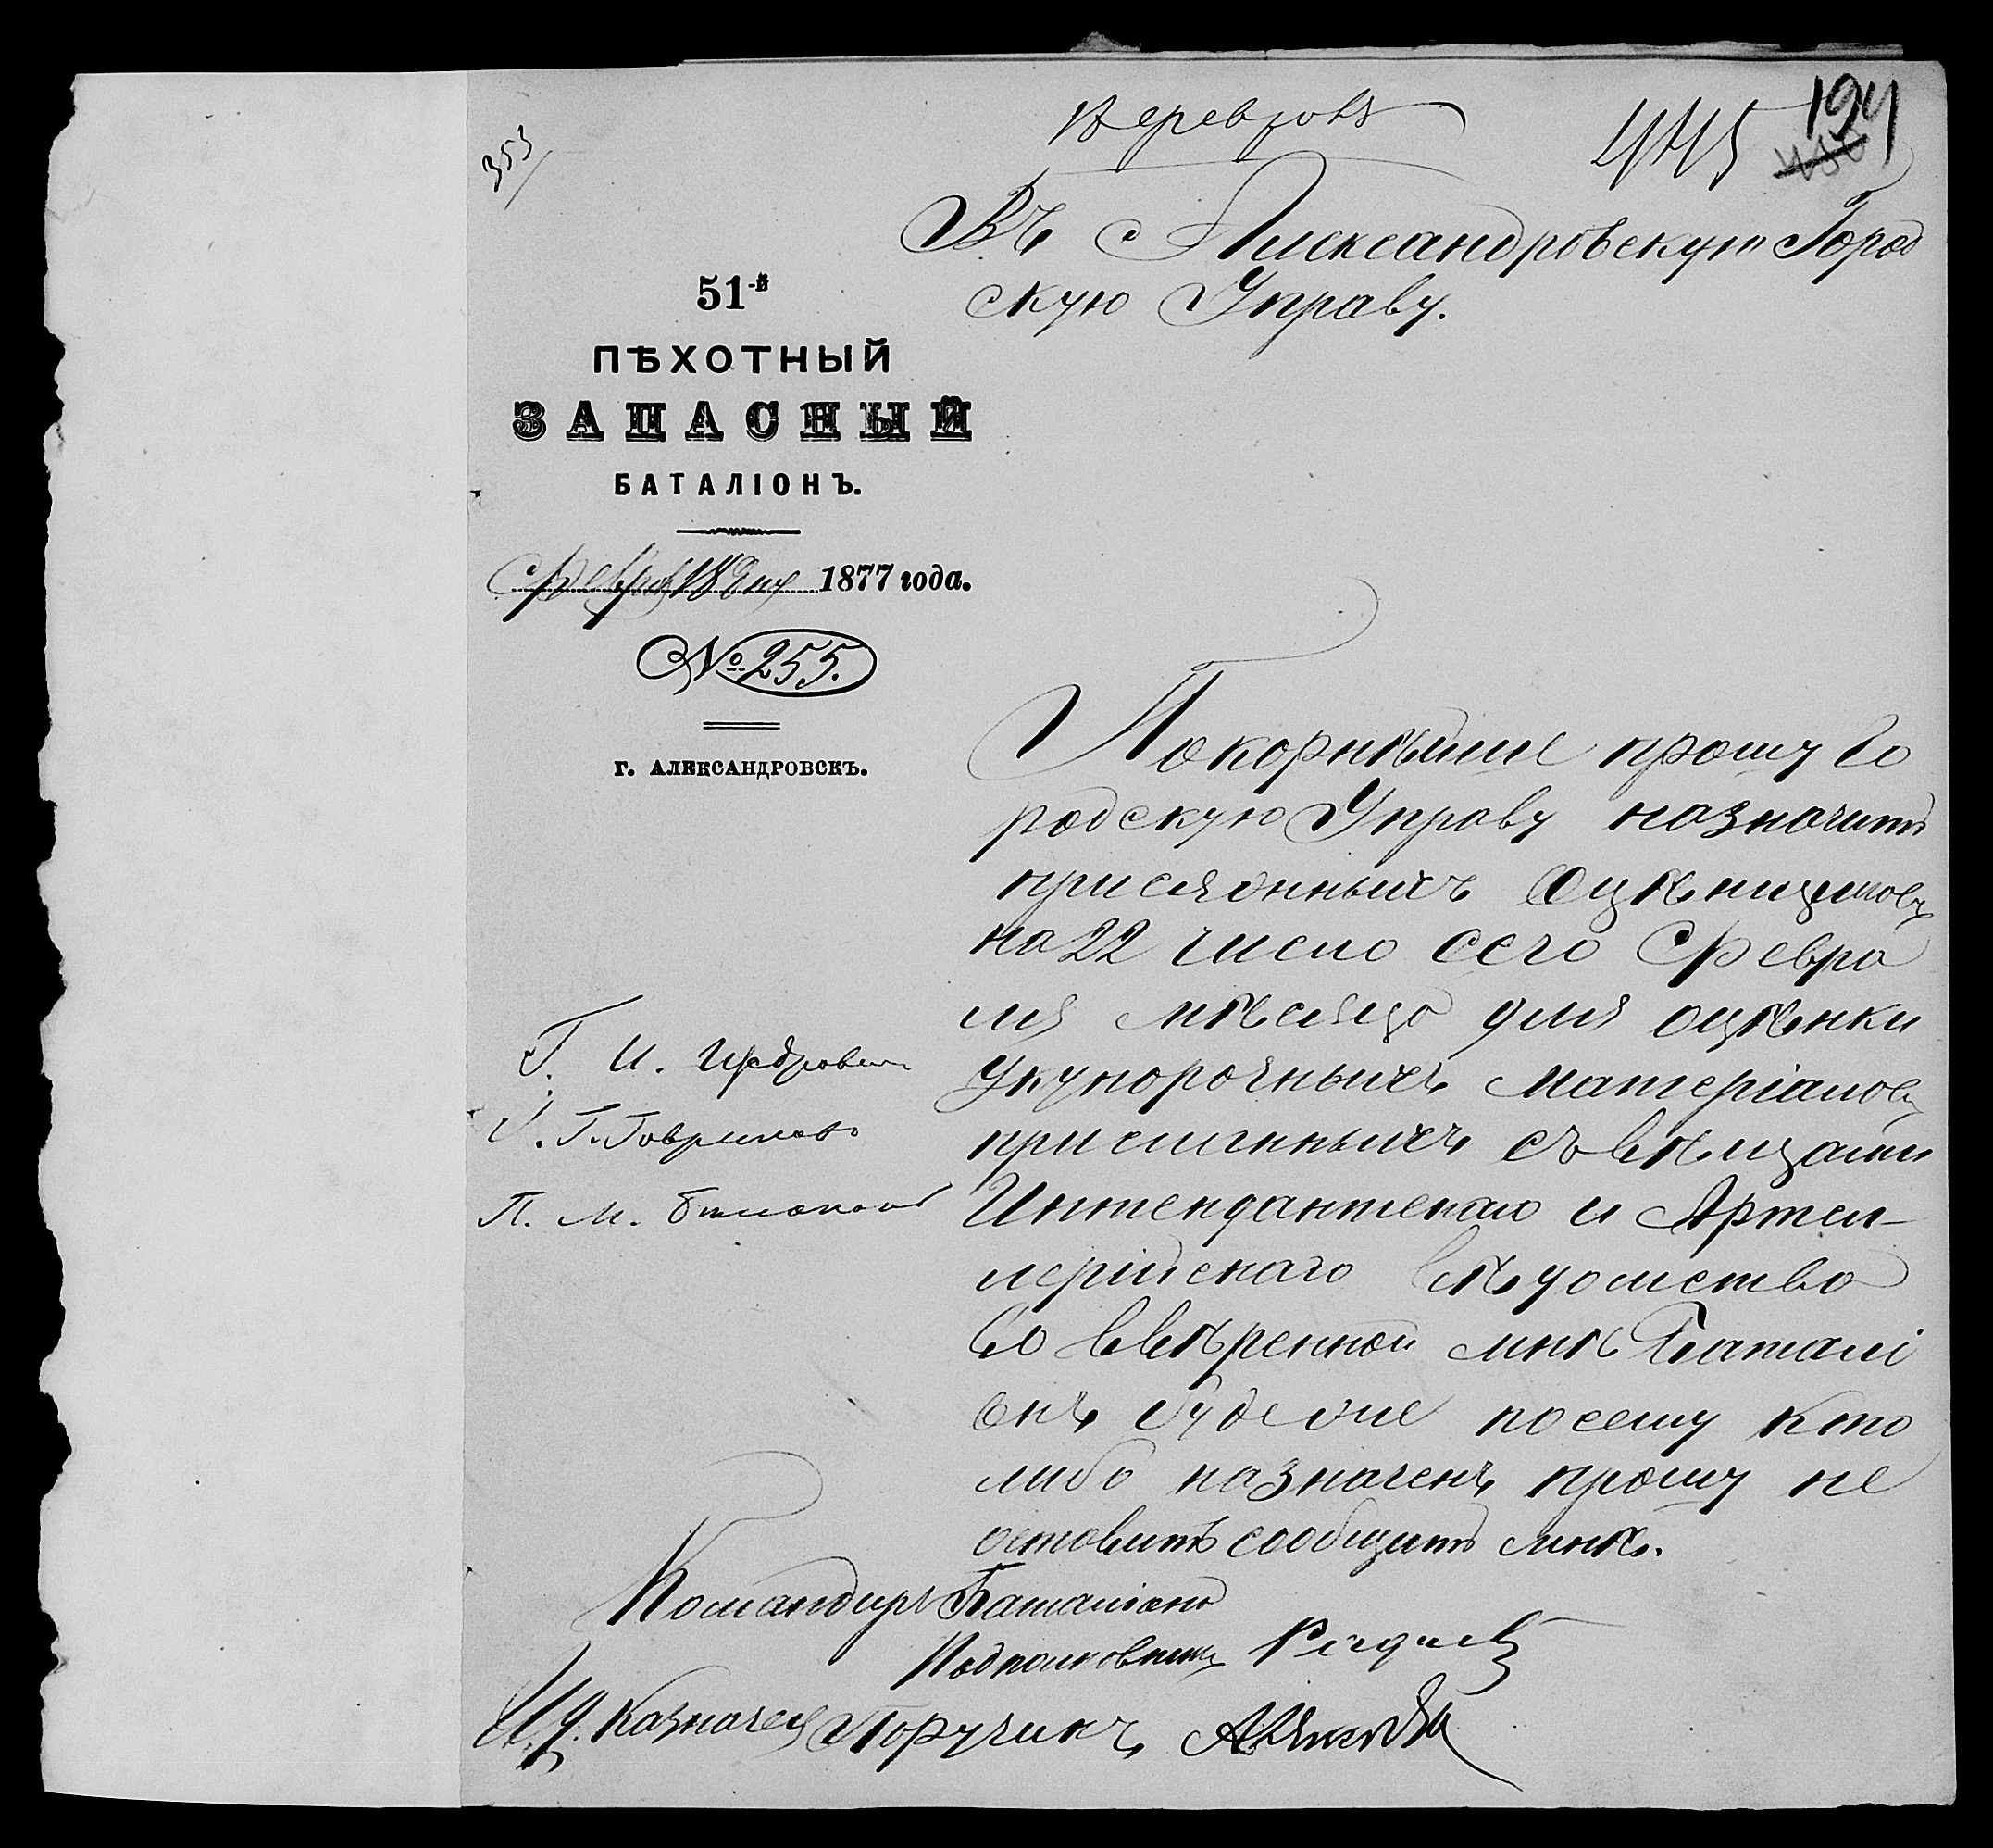 353
445
194
Въ Александровскую Город
скую Управу.
51-й
ПѢХОТНЫЙ
ЗАПАСНЫЙ
БАТАЛІОНЪ.
1877 года.
№ 255.
Г. АЛЕКСАНДРОВСКЪ.
Покорнѣйше прошу Го
родскую Управу назначить
присяжныхъ Оцѣнщиковъ
на 22 число сего Февра
ля мѣсяца для оцѣнки
укупорочныхъ матеріаловъ
присланныхъ съ вѣщами
Интендантскаго и Артил-
лерійскаго вѣдомства
во ввѣренной мнѣ Баталі
онъ посему кто
либо назначенъ прошу не
оставить сообщить мнѣ.
Г. И. Щедровъ
Г. Гавриловъ
П. М.
Командиръ Баталіона
Подполковникъ
И. д. Казначея Поручикъ